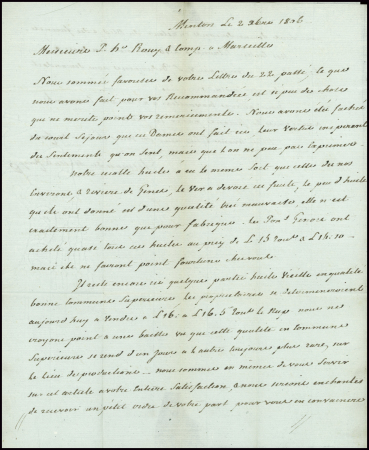 Menton Le 2 Xbre 1806
Messieurs P. hri Roux & Comp. a Marseille
Nous somme favorisés de votre Lettre du 22. passé, le que
nous avons fait pour vos Recommandées est si peu de choses
qui ne merite point vos remerciements. Nous avons été faché
du court Sejours que ces Dames ont fait ici, leur Vertus inspirant
des Sentiments qu'on sent, mais que l'on ne peu pas exprimer
Notre recolte huile a eu le meme Sort que celles de nos
Environs & riviere de Genes, le ver a devoré ces fruits, le peu d'huile
quelle ont donné est d'une qualité bien mauvaise, elle n'est
exactement bonnes que pour fabriques.
acheté quasi toute ces huiles au prix de L 13 & L 14. 10
mais que ne seront point
Il reste encore ici quelques partie huile Vieille en qualité
bonne Commune Superieure les proprietaires se determineroient
aujourd'huy a Vendre a L 16. a L 16. 5 le Rup nous ne
croyons point a une baisse vu que cette qualité en Commune
Superieure se rend d'un Jours a l'autre toujours plus rare, sur
le lieu de production. nous sommes en mesure de vous Servir
sur cet article a votre Entiere Satisfaction, & nous serions enchantés
de recevoir un petit ordre de votre part pour vous en convaincre